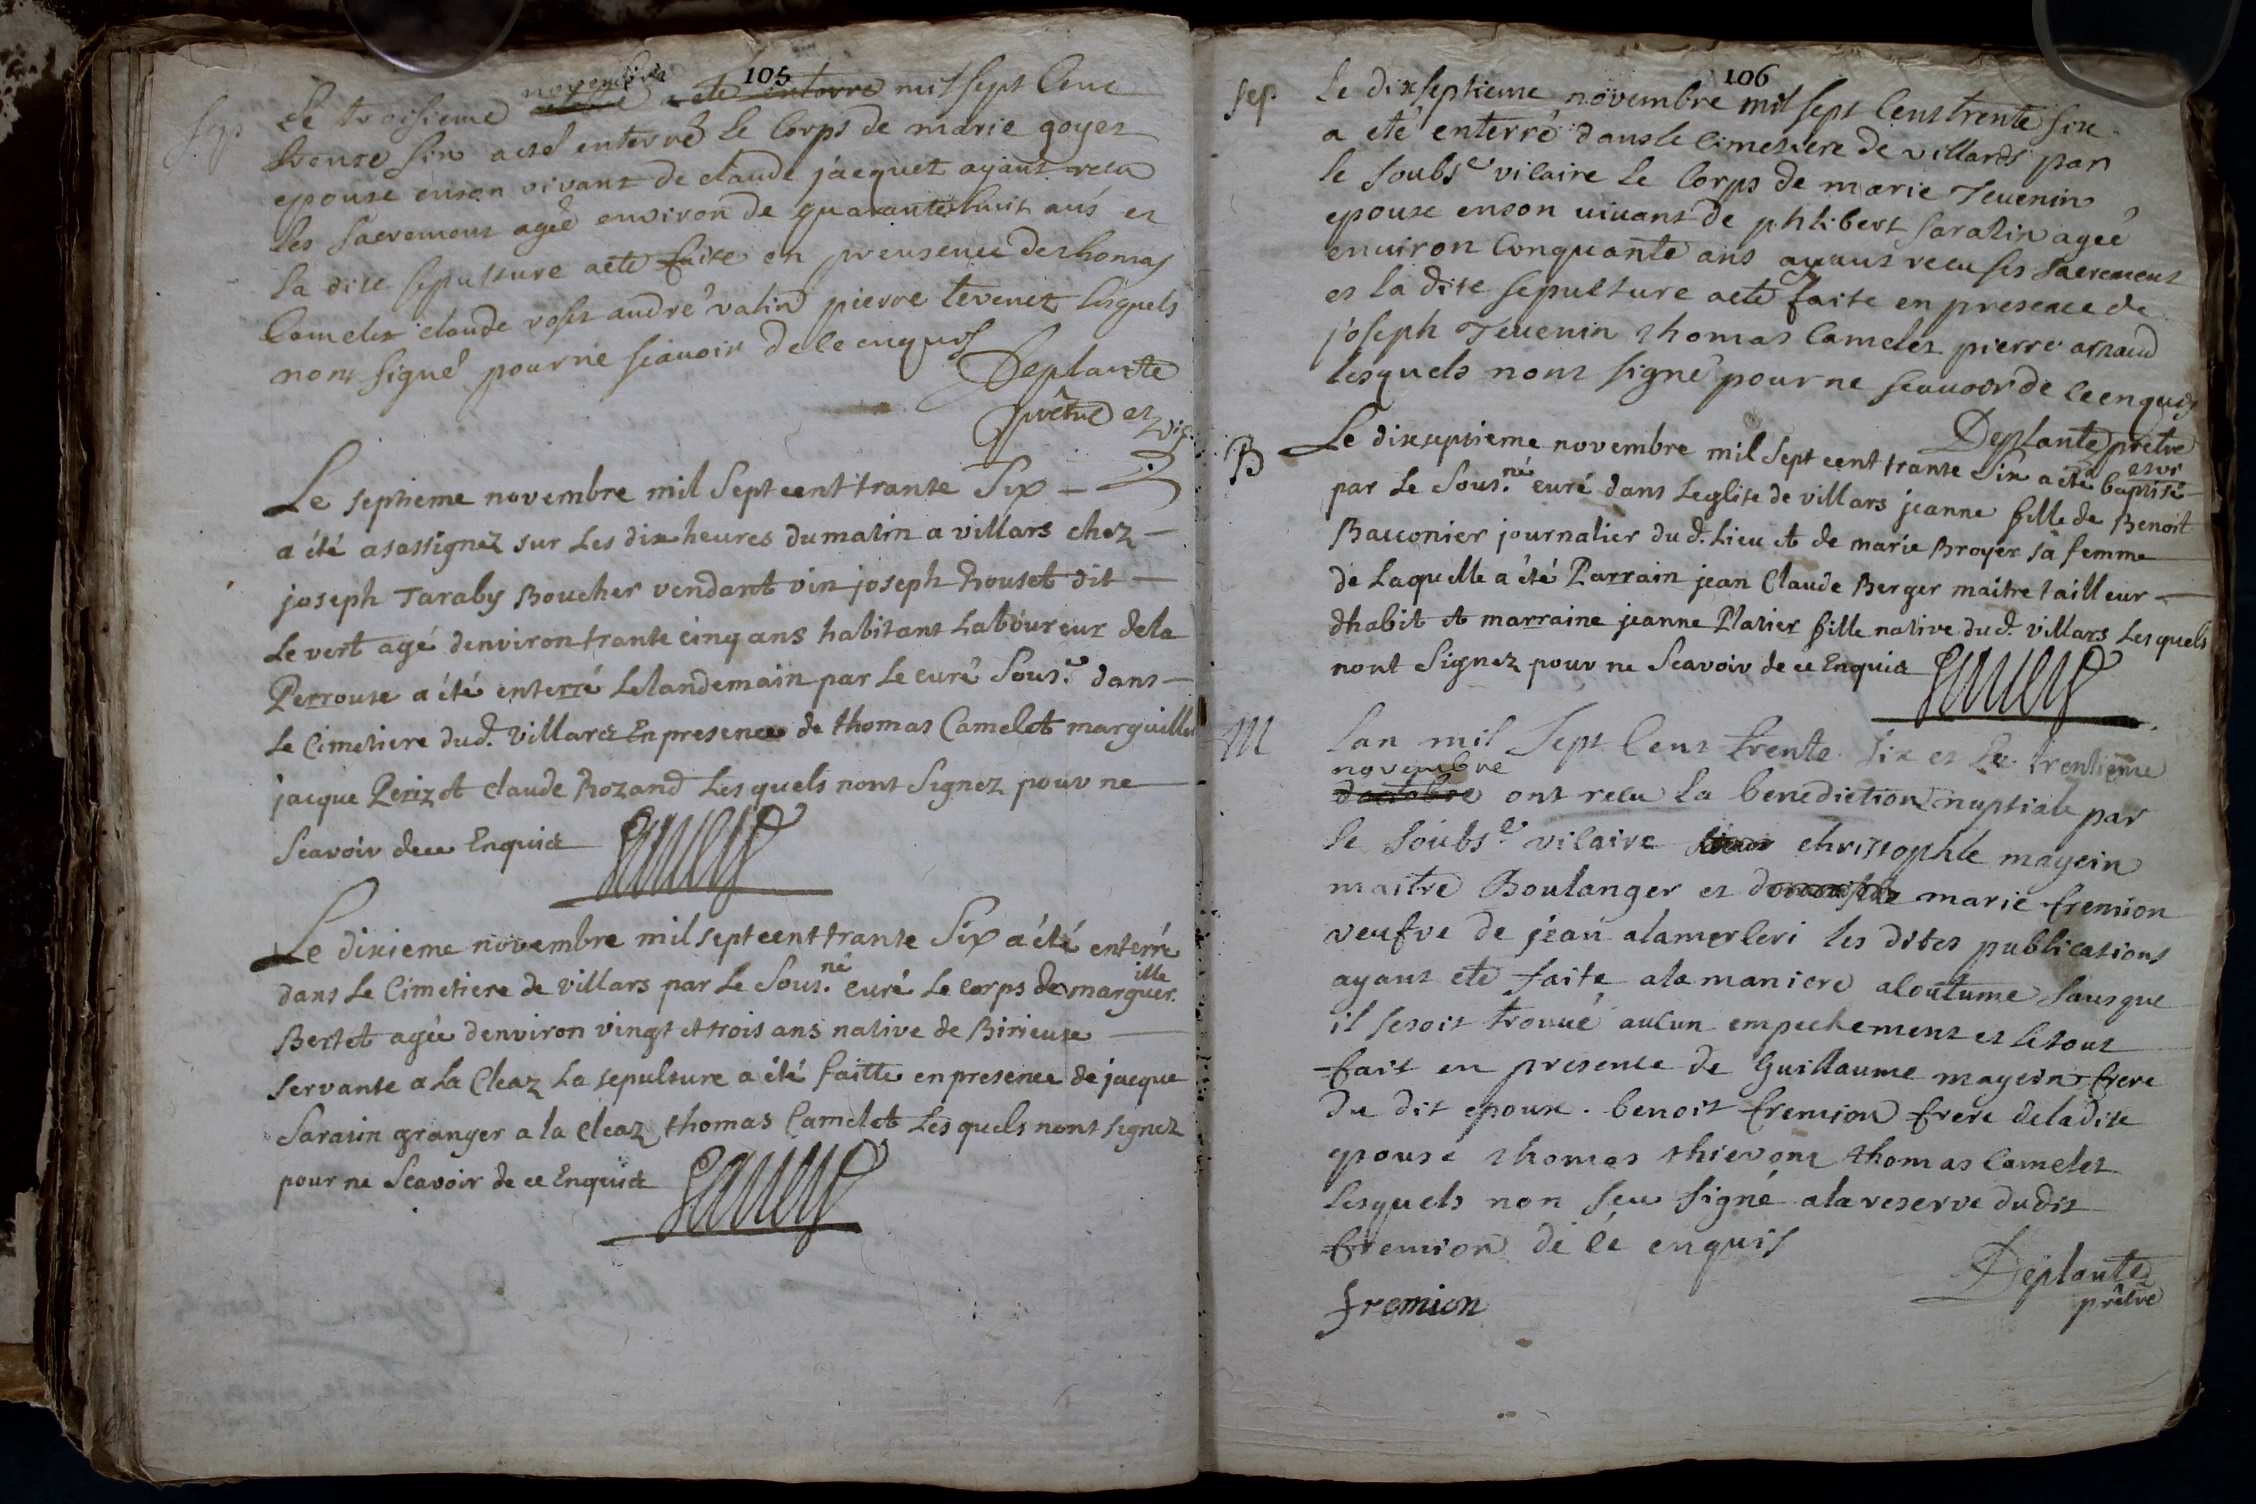 105
Sep
novembre
Le troisieme a ete enterre mil sept Cent
trente six a eté enterré le Corps de marie goyet
epouse enson vivant de claude jacquet ayant recu
les Sacrement agée environ de quarantehuit ans et
la dite sepulture aete faite en preusence dethomas
Camelet claude roset andre valin pierre tevenet lesquels
nont signé pour ne scavoir de ce enquis
Deplante
prêtre et vic.
Le septieme novembre mil Sept cent trante Six
a été asassignez sur Les dix heures du matin a villars chez
joseph Taraby Boucher vendant vin joseph Rouset dit
Le vert agé denviron trante cinq ans habitant Laboureur dela
Perrouse a été enterré Lelandemain par Le curé Sous.é dans
Le Cimetiere dud. Villars En presence de thomas Camelet marguillier
jacque Perizet claude Rozand Lesquels nont Signez pour ne
Scavoir dece Enquict
Le dixieme novembre mil sept cent trante Six a été enterré
dans Le Cimetiere de villars par Le Sous.né curé Le corps de marguerille
Bertet agée denviron vingt et trois ans native de Birieuse
Servante a La Cleaz La sepulture a été faitte en presence de jacque
Sarasin granger a la cleaz thomas Camelet Lesquels nont signez
pour ne Scavoir de ce Enquict
106
Sep.
Le dixseptieme novembre mil sept Cent trente six
a eté enterré dans le Cimetiere de villards par
le soubs.é vicaire le Corps de marie Tevenin
epouse enson vivant de phlibert Sarazin agée
environ Cinquante ans ayant recu ses Sacrement
et la dite sepulture aete faite en presence de
joseph Tevenin thomas Camelet pierre arnaud
lesquels nont signé pour ne scavoir de ce enquis
Deplante prêtre
et vi
B
Le dixseptieme novembre mil sept cent trante Six a été baptisé
par Le Sous.né curé dans Leglise de villars jeanne fille de Benoit
Bauconier journalier du d. Lieu et de marie Broyer sa femme
de Laquelle a été Parrain jean Claude Berger maitre tailleur
dhabit et marraine jeanne Platier fille native dud. villars Lesquels
nont Signez pour ne Scavoir de ce Enquict
M
Lan mil Sept Cent trente six et le trentieme
novembre
doctobre ont recu la benediction nuptiale par
le soubs.é vicaire christophle mayein
maitre Boulanger et marie fremion
veufve de jean alamerleri les dites publications
ayant ete faite ala maniere acoutume sans que
il se soit trouué aucun empechement et le tout
fait en presence de Guillaume mayein frere
du dit epoux. benoit fremion frere deladite
epouse thomas thievont thomas Camelet
lesquels non seu signé alareserve dudit
fremion de cé enquis
Deplante
prêtre
fremion